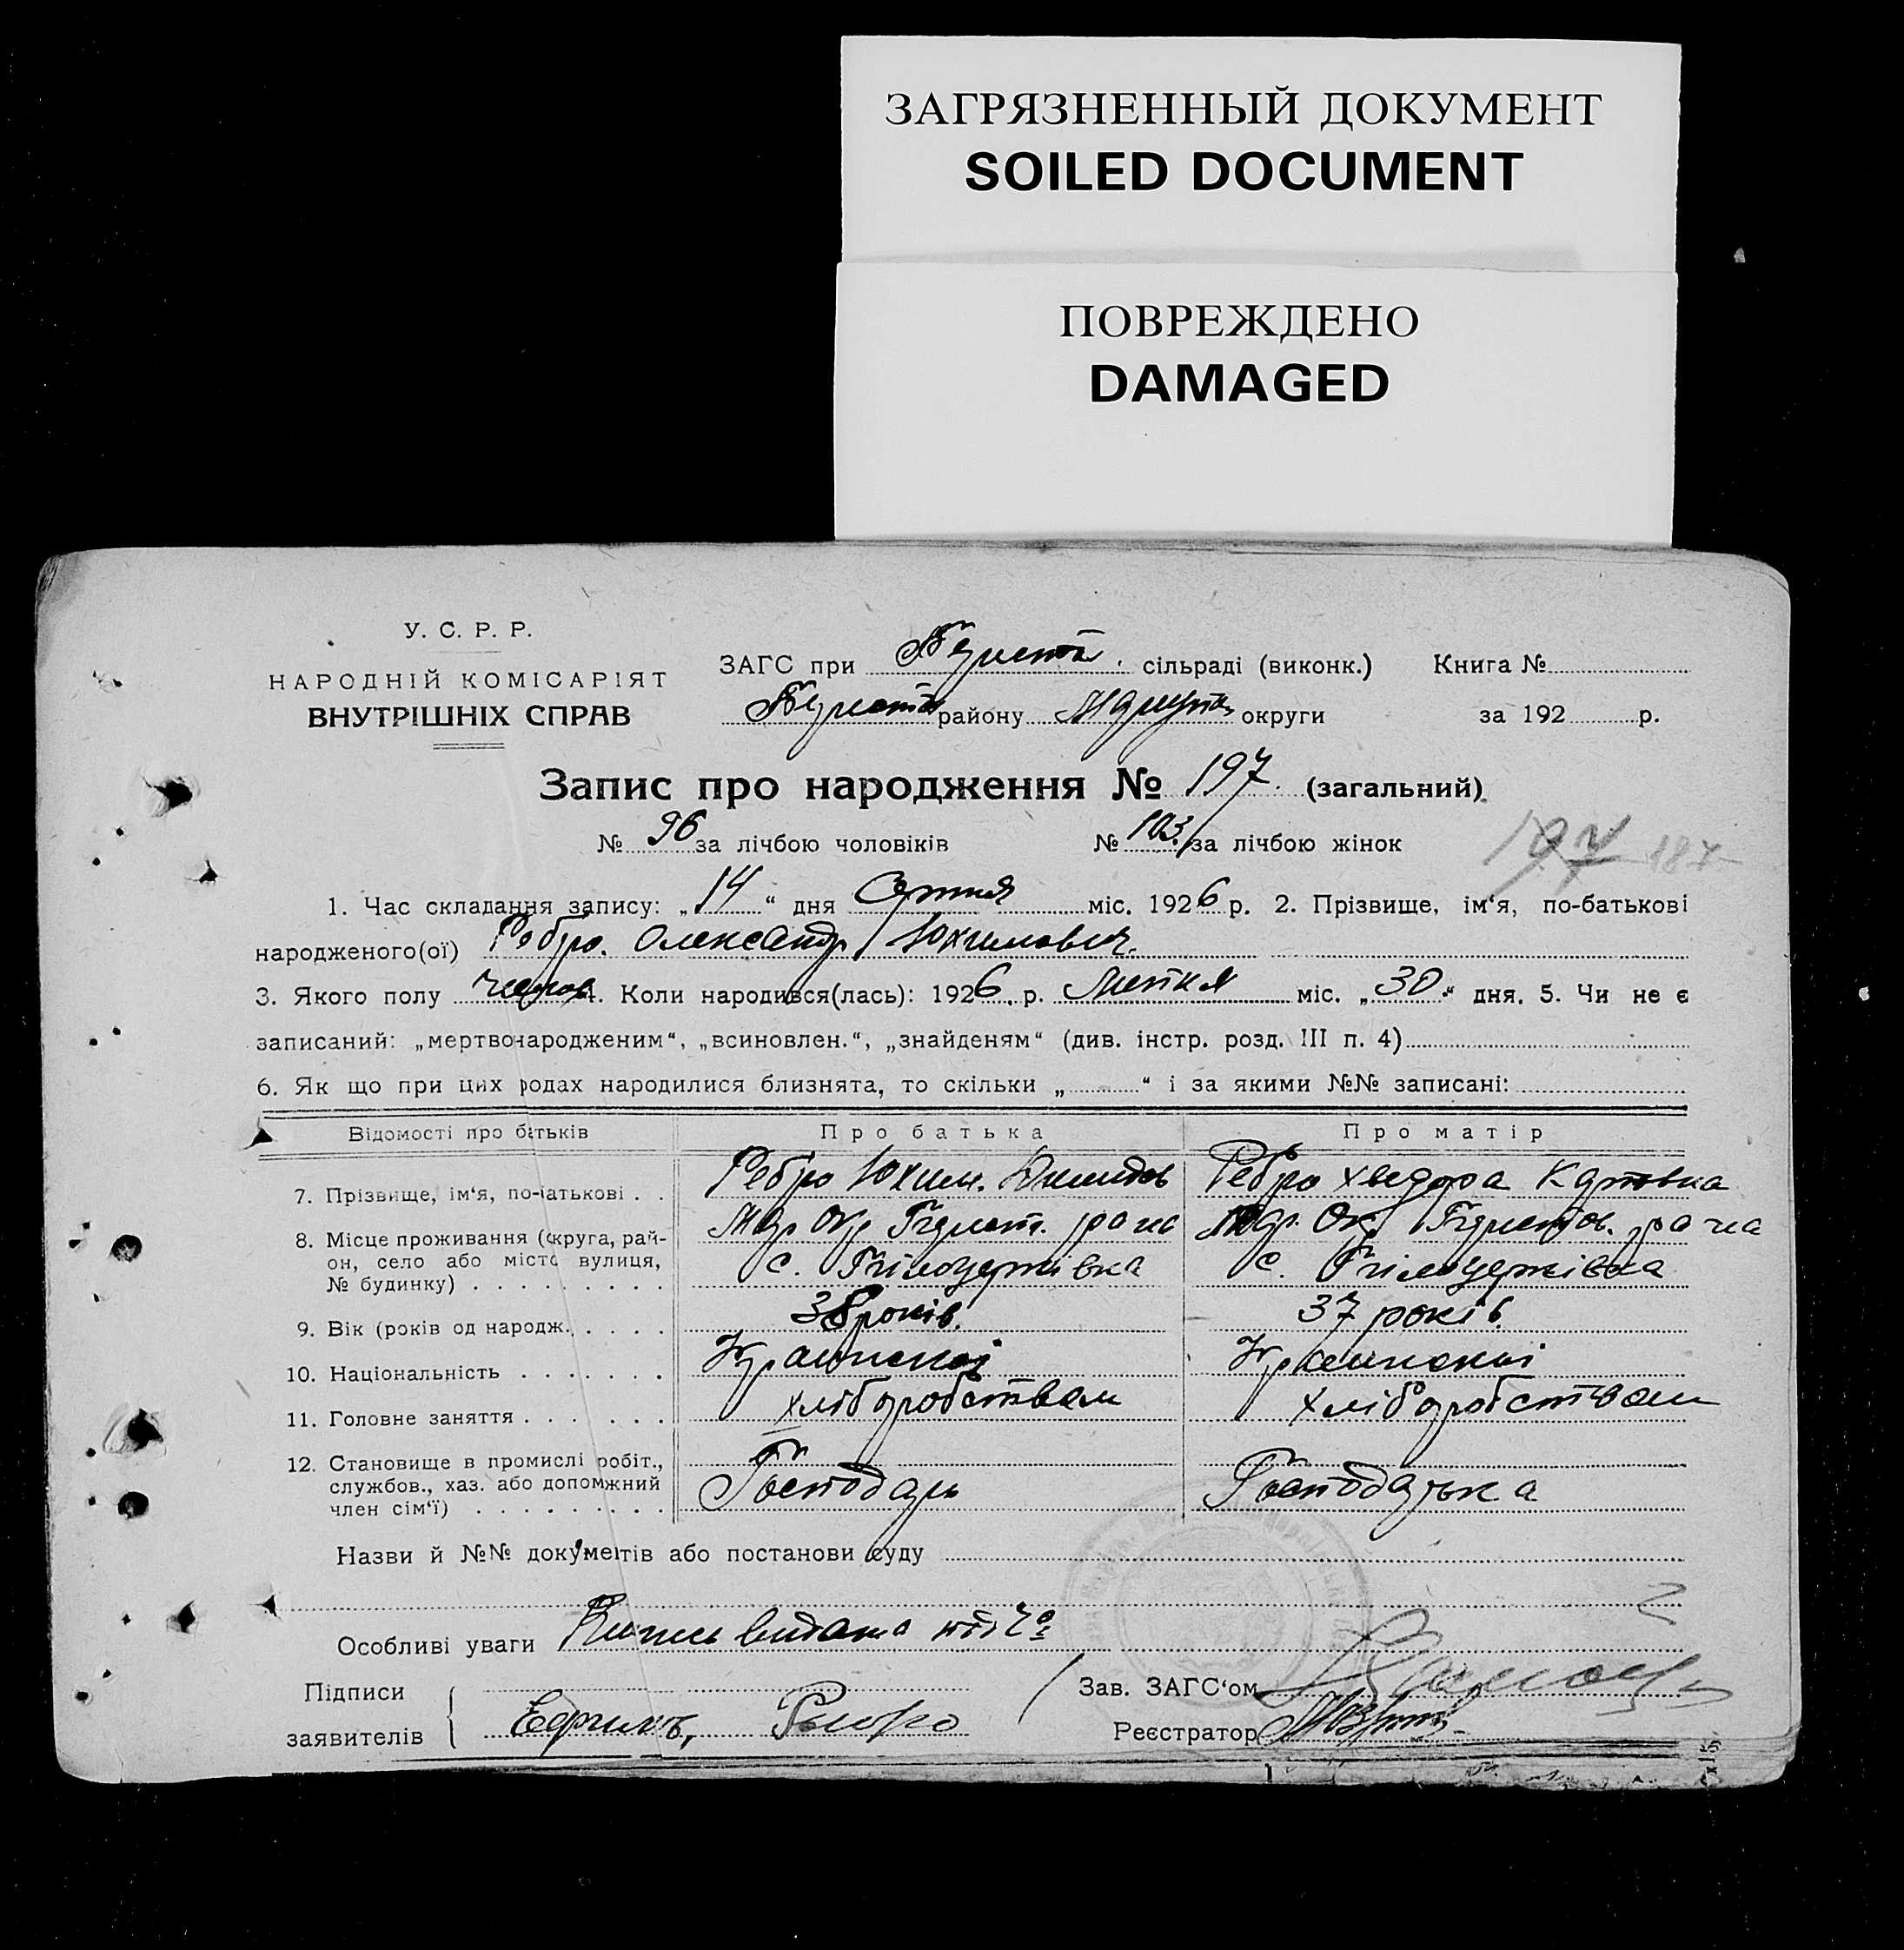 ЗАГРЯЗНЕННЫЙ ДОКУМЕНТ
SOILED DOCUMENT
ПОВРЕЖДЕНО
DAMAGED
У. С. Р. Р.
НАРОДНІЙ КОМІСАРІЯТ
ВНУТРІШНІХ СПРАВ
ЗАГС при сільраді (виконк.) Книга №
району округи за 192 р.
Запис про народження № 197. (загальний)
№ 96 за лічбою чоловіків № 103. за лічбою жінок
197 187
1. Час складання запису: „14“ дня Серпня міс. 1926 р. 2. Прізвище, ім‘я, по-батькові
народженого(ої) Ребро. Олександр Юхимович.
3. Якого полу 4. Коли народився(лась): 1926. р. Липня міс. „30“ дня. 5. Чи не є
записаний: „мертвонародженим“, „всиновлен.“, „знайденям“ (див. інстр. розд. III п. 4)
6. Як що при цих родах народилися близнята, то скільки „ “ і за якими №№ записані:
Відомості про батьків Про батька Про матір
7. Прізвище, ім‘я, по-батькові . . Ребро Юхим. Ребро Хведора
8. Місце проживання (округа, рай-
он, село або місто вулиця,
№ будинку) с. Білоцерківка с. Білоцерківка
9. Вік (років од народж. 38 років. 37 років
10. Національність Українскої Українскої
11. Головне заняття хліборобством хліборобством
12. Становище в промислі робіт.,
службов., хаз. або допоміжний
член сім‘ї) Господарь Господарька
Назви й №№ документів або постанови суду
Особливі уваги Випись видана
Підписи
заявителів Ефимъ,
Зав. ЗАГС‘ом
Реєстратор